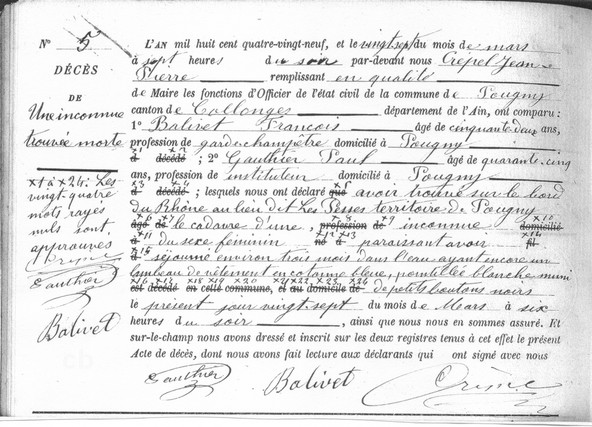 N° 5
DÉCÈS
DE
Une inconnue
trouvée morte
x1 à x24: Les
vingt-quatre
mots rayés
nuls sont
approuvés
Gauthier
Balivet
L'AN mil huit cent quatre-vingt-neuf, et le vingt sept du mois de mars
à sept heures du soir par-devant nous Crépel Jean
Pierre remplissant en qualité
de Maire les fonctions d'Officier de l'état civil de la commune de Pougny
canton de Collonges département de l'Ain, ont comparu:
1° Balivet François âgé de cinquante deux ans,
profession de garde champêtre domicilié à Pougny
à décédé ; 2° Gauthier Paul âgé de quarante cinq
ans, profession de instituteur domicilié à Pougny
à décédé ; lesquels nous ont déclaré que avoir trouvé sur le bord
du Rhône au lieu dit Les Isses territoire de Pougny
âgé de le cadavre d'une, profession de inconnue domicilié
à du sexe féminin né à paraissant avoir fil
à séjourné environ trois mois dans l'eau ayant encore un
lambeau de vêtement en cotonne bleue, pointillée blanche, muni
est décédé en cette commune, et au domicile de de petits boutons noirs
le présent jour vingt-sept du mois de Mars à six
heures du soir, ainsi que nous nous en sommes assuré. Et
sur-le-champ nous avons dressé et inscrit sur les deux registres tenus à cet effet le présent
Acte de décès, dont nous avons fait lecture aux déclarants qui ont signé avec nous
Gauthier Balivet